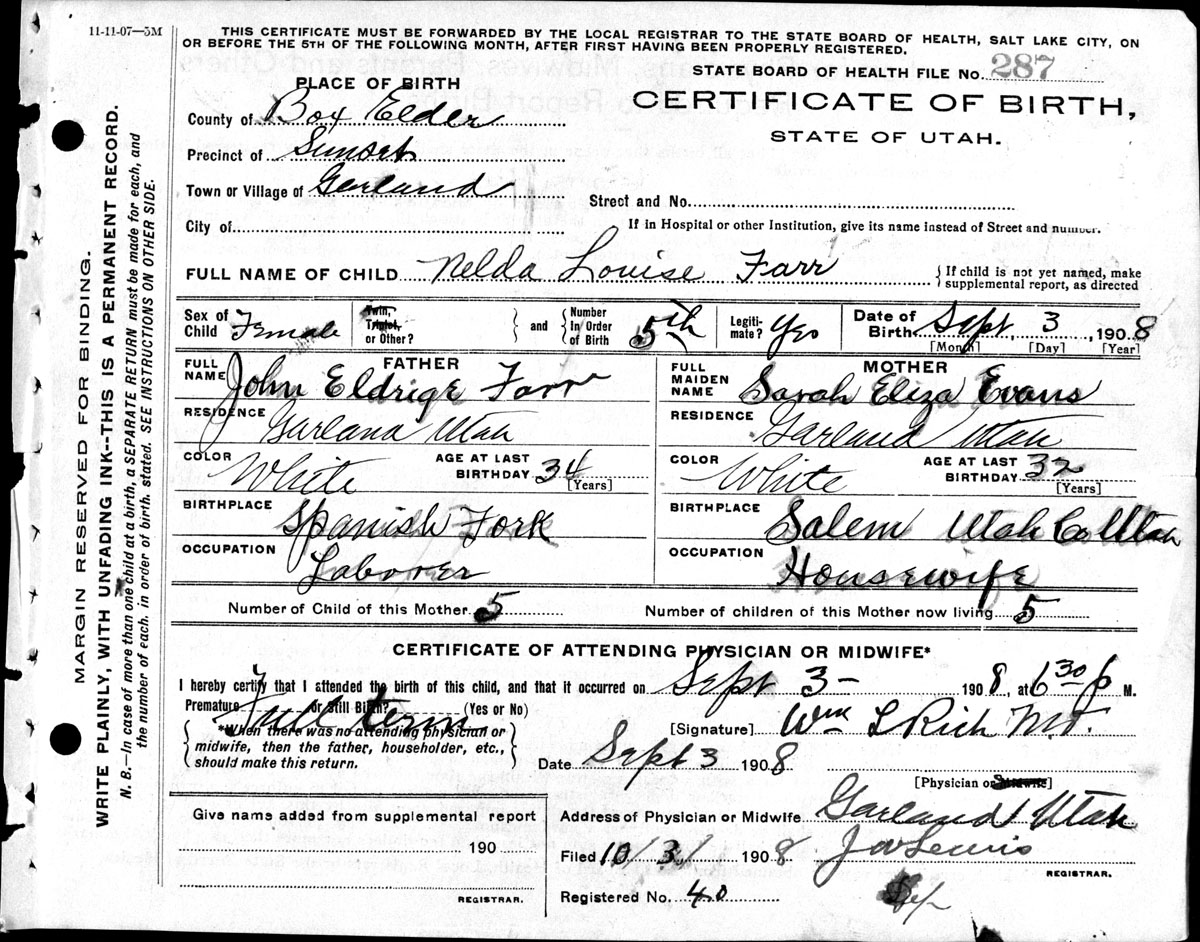 11-11-07—5M
THIS CERTIFICATE MUST BE FORWARDED BY THE LOCAL REGISTRAR TO THE STATE BOARD OF HEALTH, SALT LAKE CITY, ON
OR BEFORE THE 5TH OF THE FOLLOWING MONTH, AFTER FIRST HAVING BEEN PROPERLY REGISTERED.
STATE BOARD OF HEALTH FILE No. 287
CERTIFICATE OF BIRTH,
STATE OF UTAH.
PLACE OF BIRTH
County of Box Elder
Precinct of Sunset
Town or Village of Garland
Street and No.
City of
If in Hospital or other Institution, give its name instead of Street and number.
FULL NAME OF CHILD Nelda Louise Farr
{ If child is not yet named, make
supplemental report, as directed
Sex of Child Female
Twin, Triplet, or Other?
{ } and { Number In Order of Birth 5th
Legitimate? Yes
Date of Birth Sept 3, 1908
[Month] [Day] [Year]
FATHER
FULL NAME John Eldrige Farr
RESIDENCE Garland Utah
COLOR White
AGE AT LAST BIRTHDAY 34
[Years]
BIRTHPLACE Spanish Fork
OCCUPATION Laborer
MOTHER
FULL MAIDEN NAME Sarah Eliza Evans
RESIDENCE Garland Utah
COLOR White
AGE AT LAST BIRTHDAY 32
[Years]
BIRTHPLACE Salem Utah Co Utah
OCCUPATION Housewife
Number of Child of this Mother 5
Number of children of this Mother now living 5
CERTIFICATE OF ATTENDING PHYSICIAN OR MIDWIFE*
I hereby certify that I attended the birth of this child, and that it occurred on Sept 3— 1908, at 6 30 p M.
Premature or Still Birth? (Yes or No)
Full term
{ *When there was no attending physician or
midwife, then the father, householder, etc.,
should make this return. }
[Signature] Wm L Rich MD.
Date Sept 3 1908
[Physician or Midwife]
Give name added from supplemental report
190
REGISTRAR.
Address of Physician or Midwife Garland Utah
Filed 10/3/ 1908 J W Lewis
REGISTRAR.
Registered No. 40
MARGIN RESERVED FOR BINDING.
WRITE PLAINLY, WITH UNFADING INK--THIS IS A PERMANENT RECORD.
N. B.—In case of more than one child at a birth, a SEPARATE RETURN must be made for each, and
the number of each, in order of birth, stated. SEE INSTRUCTIONS ON OTHER SIDE.